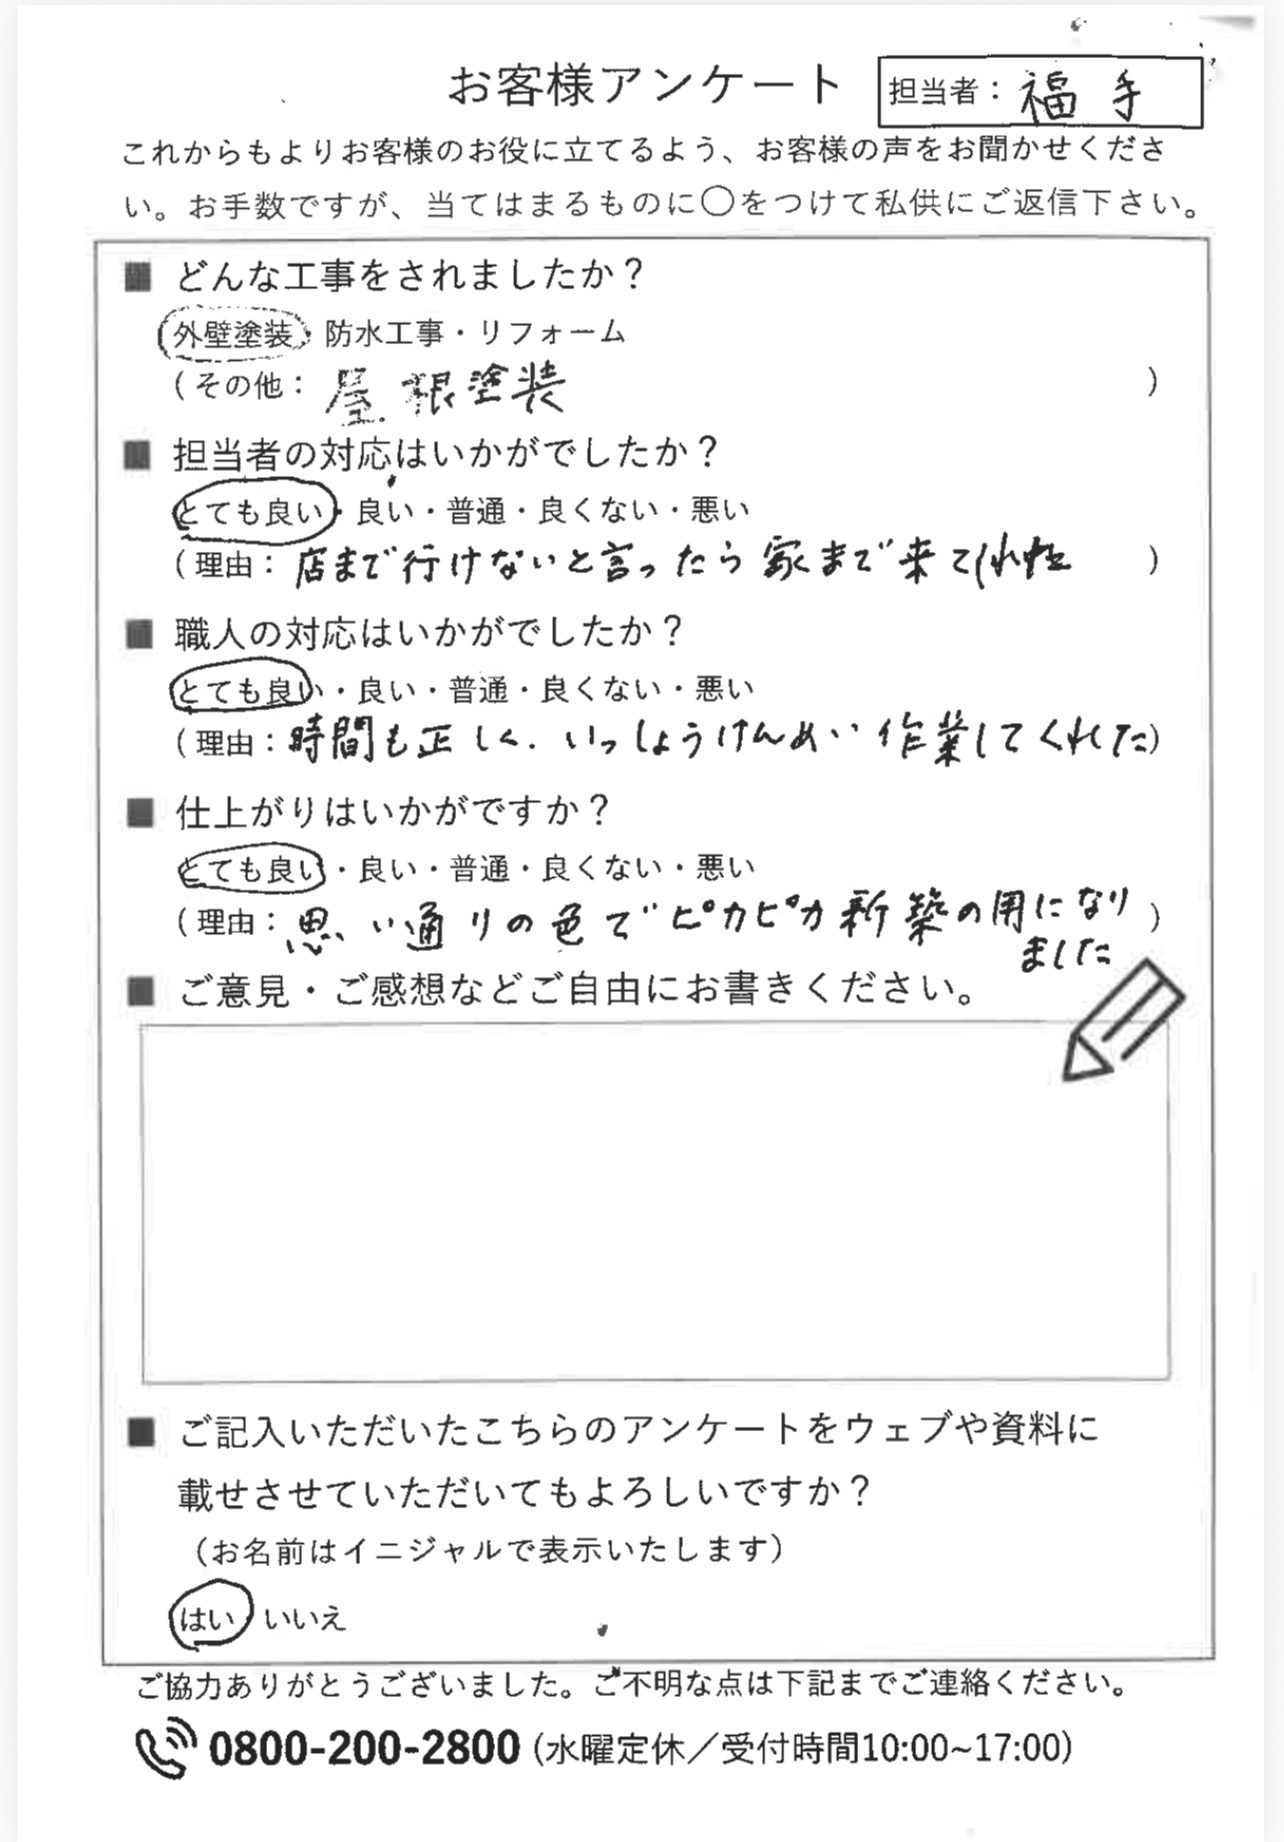 お客様アンケート
担当者：福手
これからもよりお客様のお役に立てるよう、お客様の声をお聞かせくださ
い。お手数ですが、当てはまるものに〇をつけて私供にご返信下さい。
■ どんな工事をされましたか？
外壁塗装・防水工事・リフォーム
（その他：屋根塗装）
■ 担当者の対応はいかがでしたか？
とても良い・良い・普通・良くない・悪い
（理由：店まで行けないと言ったら家まで来てくれた）
■ 職人の対応はいかがでしたか？
とても良い・良い・普通・良くない・悪い
（理由：時間も正しく、いっしょうけんめい作業してくれた）
■ 仕上がりはいかがですか？
とても良い・良い・普通・良くない・悪い
（理由：思い通りの色でピカピカ新築の用になり
ました）
■ ご意見・ご感想などご自由にお書きください。
■ ご記入いただいたこちらのアンケートをウェブや資料に
載せさせていただいてもよろしいですか？
（お名前はイニジャルで表示いたします）
はい いいえ
ご協力ありがとうございました。ご不明な点は下記までご連絡ください。
0800-200-2800（水曜定休／受付時間10:00~17:00）